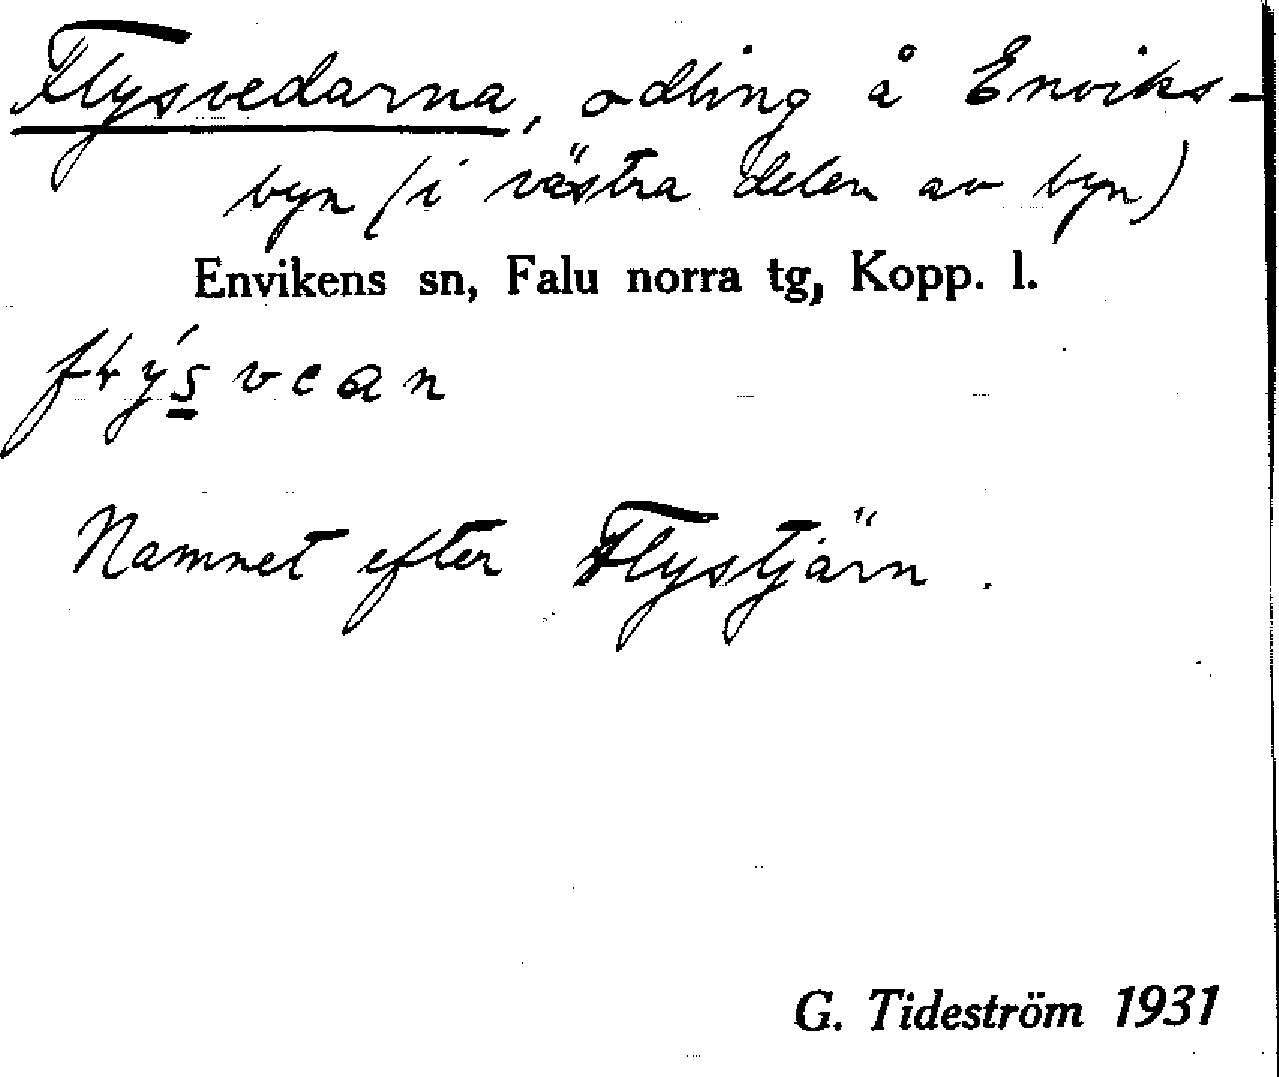 Flysvedarna, odling å Enviks-
byn (i västra delen av byn)
Envikens sn, Falu norra tg, Kopp. l.
Namnet efter Flystjärn.
G. Tideström 1931